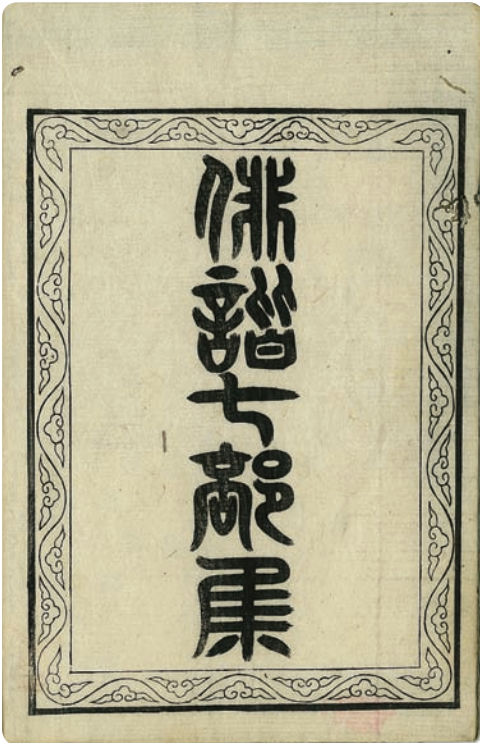 俳諧七部集